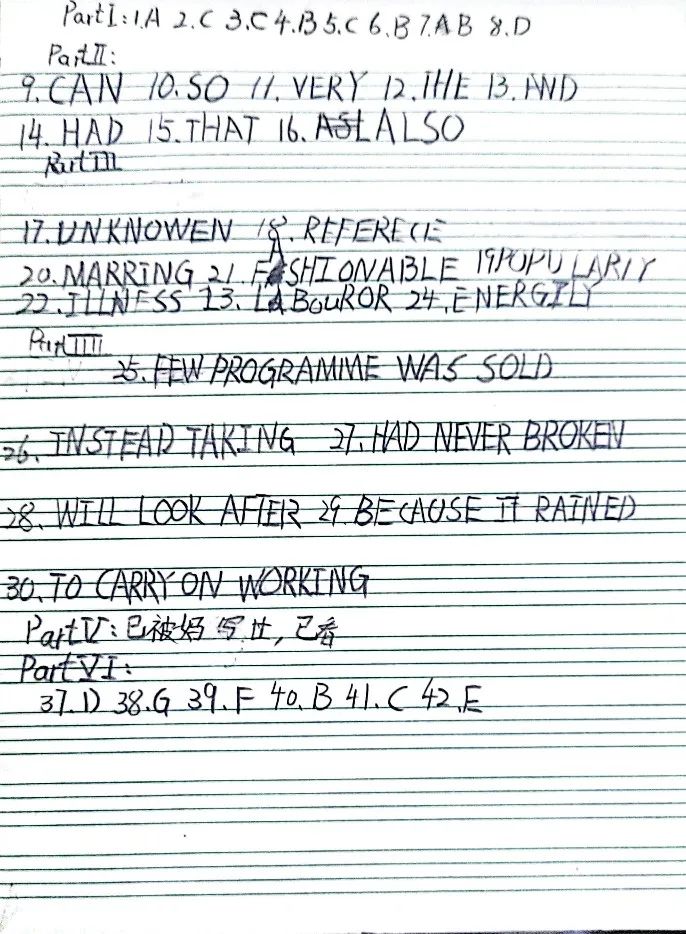 Part I: 1.A 2.C 3.C 4.B 5.C 6.B 7.AB 8.D
Part II:
9. CAN 10. SO 11. VERY 12. THE 13. AND
14. HAD 15. THAT 16. ALSO
Part III
17. UNKNOWEN 18. REFERECIE
20. MARRING 21. FASHIONABLE 19 POPULARLY
22. ILLNESS 23. LABOUROR 24. ENERGILY
Part IIII
25. FEW PROGRAMME WAS SOLD
26. INSTEAD TAKING 27. HAD NEVER BROKEN
28. WILL LOOK AFTER 29. BECAUSE IT RAINED
30. TO CARRY ON WORKING
Part V: 已被妈写 , 已看
Part VI:
37. D 38. G 39. F 40. B 41. C 42. E